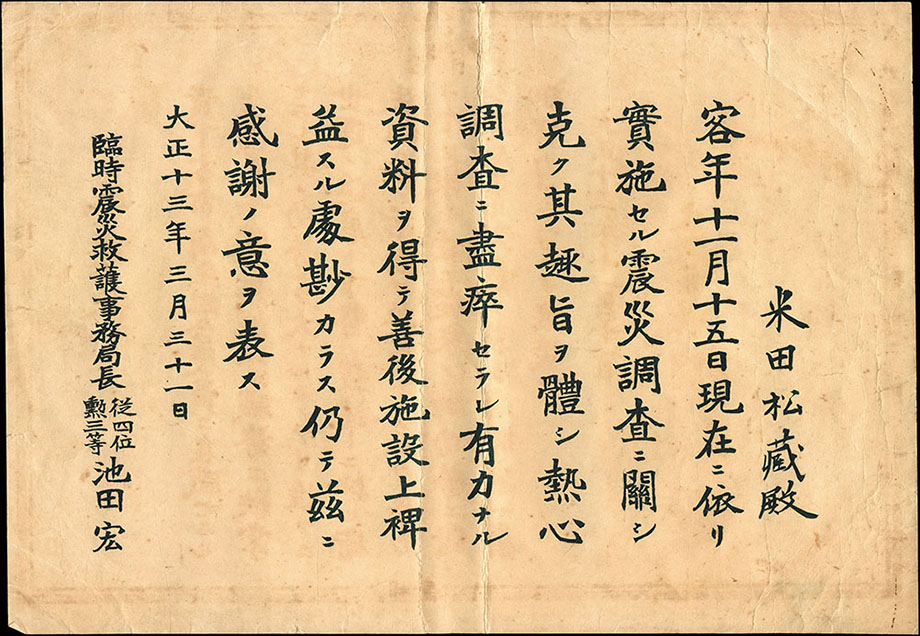 米田松藏殿
客年十一月十五日現在ニ依リ
實施セル震災調査ニ關シ
克ク其趣旨ヲ體シ熱心
調査ニ盡瘁セラレ有力ナル
資料ヲ得テ善後施設上裨
益スル處尠カラス仍テ茲ニ
感謝ノ意ヲ表ス
大正十三年三月三十一日
臨時震災救護事務局長 從四位勲三等 池田宏